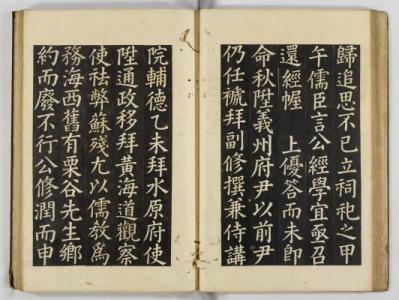 歸追思不已立祠祀之甲
午儒臣言公經學宜亟召
還經幄 上優答而未卽
命秋陞義州府尹以前尹
仍任褫拜副修撰兼侍講
院輔德乙未拜水原府使
陞通政移拜黃海道觀察
使祛弊蘇殘尤以儒敎爲
務海西舊有栗谷先生鄕
約而廢不行公修潤而申